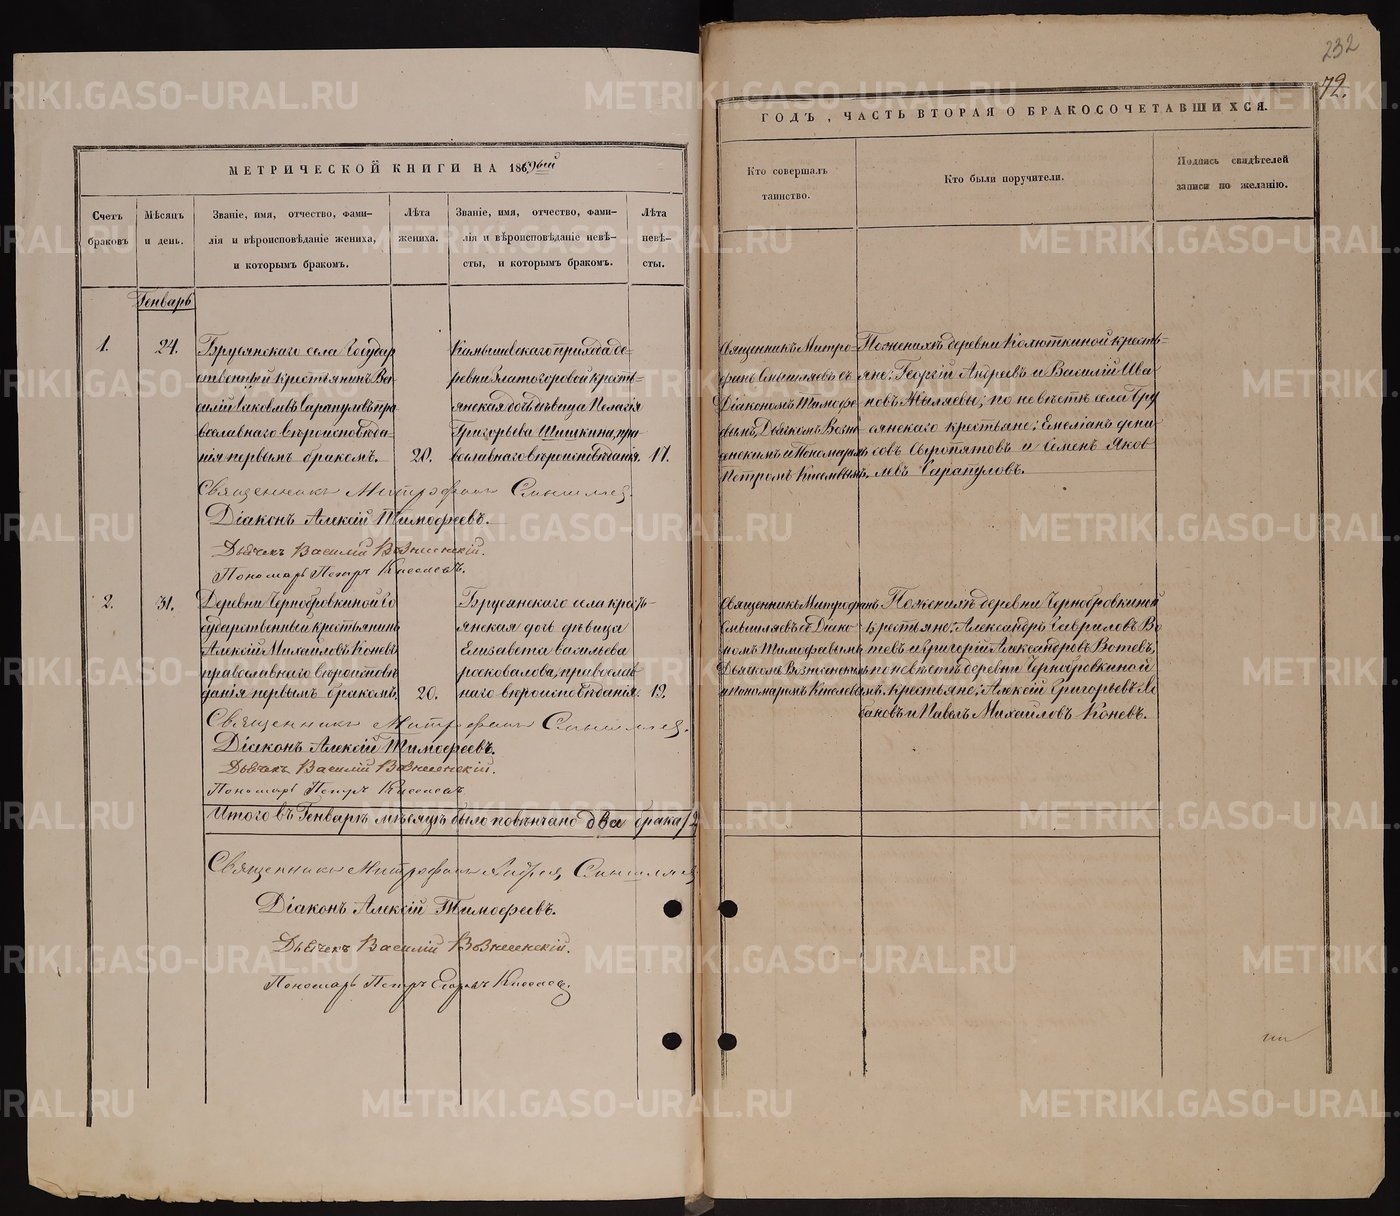 МЕТРИЧЕСКОЙ КНИГИ НА 1869ый
Счетъ браковъ
Мѣсяцъ и день.
Званіе, имя, отчество, фами-
лія и вѣроисповѣданіе жениха,
и которымъ бракомъ.
Лѣта жениха.
Званіе, имя, отчество, фами-
лія и вѣроисповѣданіе невѣ-
сты, и которымъ бракомъ.
Лѣта невѣ-
сты.
Генварь
1.
24.
Брусянскаго села Государ
ственный крестьянинъ Ва
силій Іаковлевъ Сарапуловъ пра
вославнаго вѣроисповѣда-
нія первымъ бракомъ.
20.
Камышевскаго прихода де-
ревни Златогоровой кресть-
янская дочь дѣвица Пелагія
Григорьева Шишкина, пра
вославнаго вѣроисповѣданія.
17.
Священникъ Митрофанъ Смышляев.
Діаконъ Алексій Тимофеевъ.
Дьячекъ Василій Вознесенскій.
Пономарь Петръ Киселевъ.
2.
31.
Деревни Чернобровкиной Го
сударственный крестьянинъ
Алексій Михайловъ Коневъ
православнаго вѣроисповѣ
данія первымъ бракомъ,
20.
Брусянскаго села кресть-
янская дочь дѣвица
Елизавета Васильева
православ
наго вѣроисповѣданія.
19.
Священникъ Митрофанъ Смышляев.
Діаконъ Алексій Тимофеевъ.
Дьячекъ Василій Вознесенскій.
Пономарь Петръ Киселевъ
Итого въ Генварѣ мѣсяцѣ было повѣнчано два брака /2
Священникъ Митрофанъ Смышляев
Діаконъ Алексій Тимофеевъ.
Дьячекъ Василій Вознесенскій.
Пономарь Петръ Егоровъ Киселев.
232
72.
ГОДЪ, ЧАСТЬ ВТОРАЯ О БРАКОСОЧЕТАВШИХСЯ.
Кто совершалъ
таинство.
Кто были поручители.
Подпись свидѣтелей
записи по желанію.
Священникъ Митро-
фанъ Смышляевъ съ
Діакономъ Тимофе-
евымъ, Дьячкомъ Возне-
сенскимъ и Пономаремъ
Петромъ Киселевымъ.
По женихѣ деревни Колюткиной кресть-
яне: Георгій Андреевъ и Василій Ива
новъ Жиляевы; по невѣстѣ села Бру
сянскаго крестьяне: Емеліанъ Дени
совъ Сыропятовъ и Семенъ Яков
левъ Сарапуловъ.
Священникъ Митрофанъ
Смышляевъ съ Діако-
номъ Тимофеевымъ
Дьячкомъ Вознесенскимъ
и пономаремъ Киселевымъ.
По женихѣ деревни Чернобровкиной
крестьяне: Александръ Гавриловъ Во
тевъ и Григорій Александровъ Вотевъ,
по невѣстѣ деревни Чернобровкиной
крестьяне: Алексій Григорьевъ
и Павелъ Михайловъ Коневъ.
METRIKI.GASO-URAL.RU